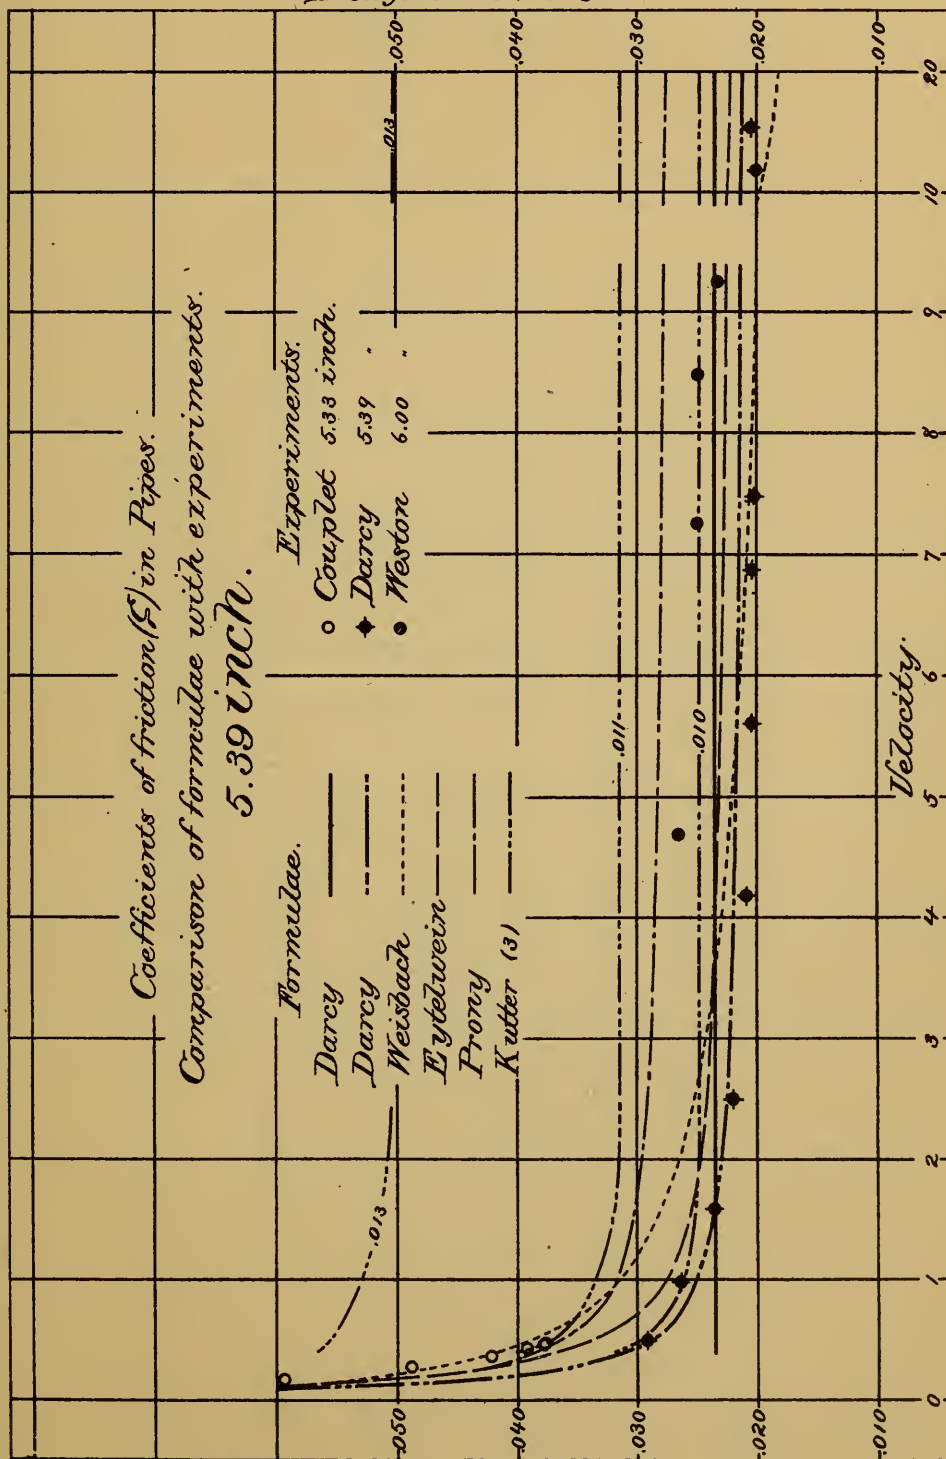 Coefficients of friction (ζ) in Pipes.
Comparison of formulae with experiments.
5.39 inch.
Formulae.
Darcy
Darcy
Weisbach
Eytelwein
Prony
Kutter (3)
Experiments.
Couplet 5.33 inch.
Darcy 5.39 "
Weston 6.00 "
.013
.013
.011
.010
.050
.040
.030
.020
.010
.050
.040
.030
.020
.010
0 1 2 3 4 5 6 7 8 9 10 20
Velocity.